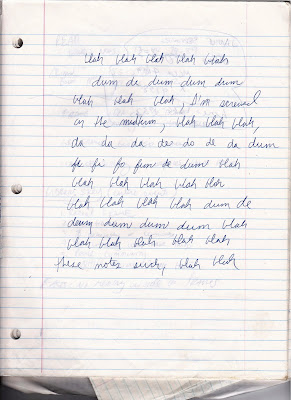 blah blah blah blah blah
dum de dum dum dum
blah blah blah, I'm screwed
on the midterm, blah blah blah,
da da da de do de da dum
fe fi fo fum de dum blah
blah blah blah blah blah
blah blah blah blah dum de
dum dum dum dum blah
blah blah blah blah blah
these notes suck, blah blah